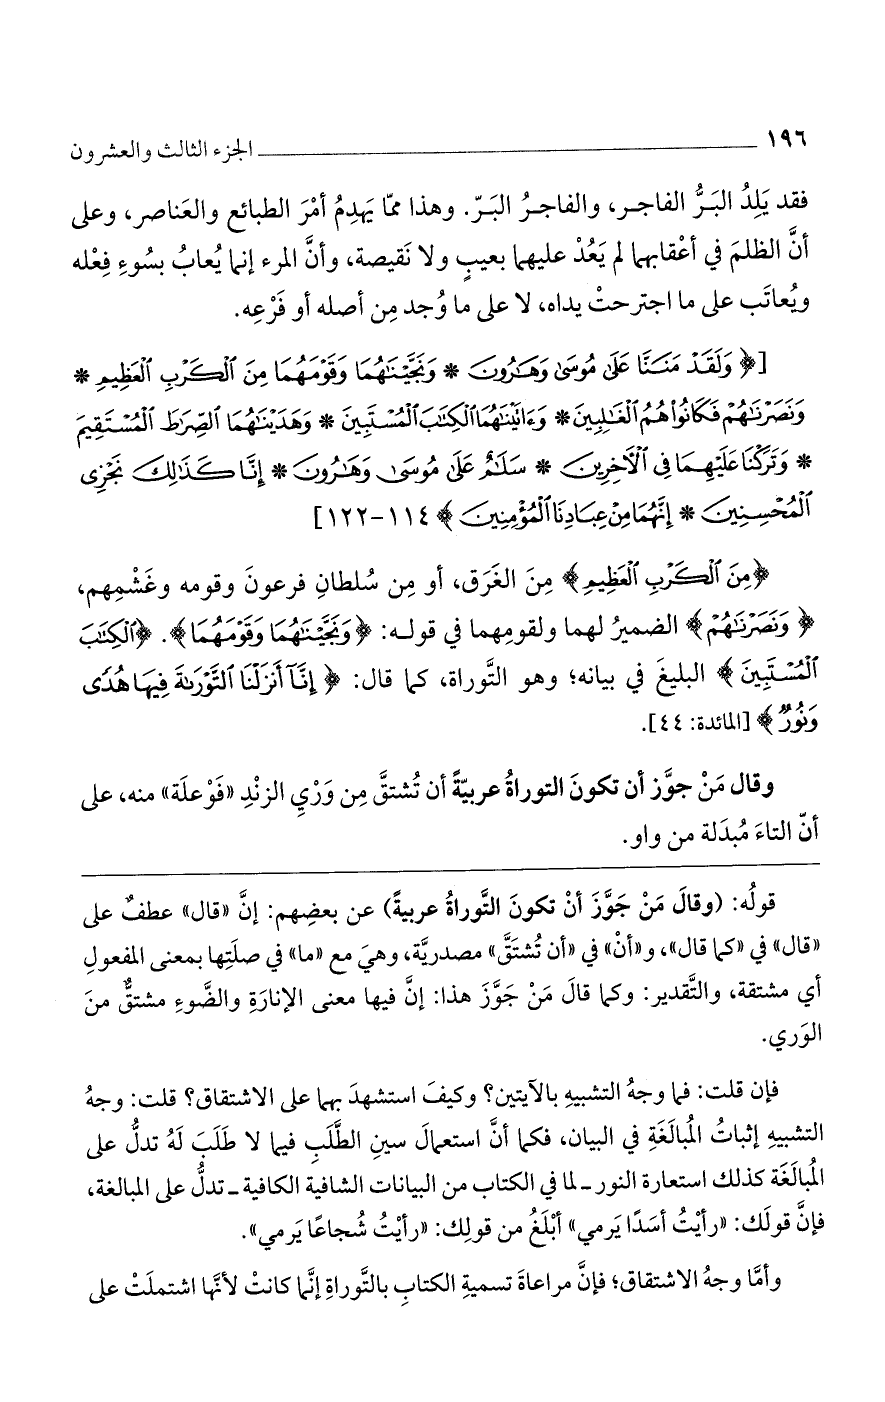 ١٩٦ الجزء الثالث والعشرون
فقد يَلِدُ البَرُّ الفاجر، والفاجرُ البَرّ. وهذا ممّا يَهدِمُ أمْرَ الطبائع والعَناصر، وعلى
أنَّ الظلمَ في أعْقابهما لم يَعُدْ عليهما بعيبٍ ولا نَقيصة، وأنَّ المرء إنما يُعابُ بسُوءِ فِعْله
ويُعاتَب على ما اجترحتْ يداه، لا على ما وُجد مِن أصله أو فَرْعِه.
[﴿ وَلَقَدْ مَنَنَّا عَلَىٰ مُوسَىٰ وَهَٰرُونَ * وَنَجَّيْنَٰهُمَا وَقَوْمَهُمَا مِنَ ٱلْكَرْبِ ٱلْعَظِيمِ *
وَنَصَرْنَٰهُمْ فَكَانُوا۟ هُمُ ٱلْغَٰلِبِينَ * وَءَاتَيْنَٰهُمَا ٱلْكِتَٰبَ ٱلْمُسْتَبِينَ * وَهَدَيْنَٰهُمَا ٱلصِّرَٰطَ ٱلْمُسْتَقِيمَ
* وَتَرَكْنَا عَلَيْهِمَا فِى ٱلْـَٔاخِرِينَ * سَلَٰمٌ عَلَىٰ مُوسَىٰ وَهَٰرُونَ * إِنَّا كَذَٰلِكَ نَجْزِى
ٱلْمُحْسِنِينَ * إِنَّهُمَا مِنْ عِبَادِنَا ٱلْمُؤْمِنِينَ ﴾ ١١٤-١٢٢]
﴿مِنَ ٱلْكَرْبِ ٱلْعَظِيمِ﴾ مِنَ الغَرَق، أو مِن سُلطانِ فرعونَ وقومه وغَشْمِهم،
﴿ وَنَصَرْنَٰهُمْ﴾ الضميرُ لهما ولقومِهما في قوله: ﴿وَنَجَّيْنَٰهُمَا وَقَوْمَهُمَا﴾. ﴿ٱلْكِتَٰبَ
ٱلْمُسْتَبِينَ ﴾ البليغَ في بيانه؛ وهو التَّوراة، كما قال: ﴿ إِنَّآ أَنزَلْنَا ٱلتَّوْرَىٰةَ فِيهَا هُدًى
وَنُورٌ﴾ [المائدة: ٤٤].
وقال مَنْ جوَّز أن تكونَ التوراةُ عربيّةً أن تُشتقَّ مِن وَرْيِ الزنْدِ «فَوْعلَة» منه، على
أنّ التاءَ مُبدَلة من واو.
قولُه: (وقالَ مَنْ جَوَّزَ أنْ تكونَ التَّوراةُ عربيةً) عن بعضِهم: إنَّ «قال» عطفٌ على
«قال» في «كما قال»، و«أنْ» في «أن تُشتَقَّ» مصدريَّة، وهيَ مع «ما» في صلَتِها بمعنى المفعولِ
أي مشتقة، والتَّقدير: وكما قالَ مَنْ جَوَّزَ هذا: إنَّ فيها معنى الإنارَةِ والضَّوءِ مشتقٌّ منَ
الوَري.
فإن قلت: فما وجهُ التشبيهِ بالآيتين؟ وكيفَ استشهدَ بهما على الاشتقاق؟ قلت: وجهُ
التشبيهِ إثباتُ المُبالَغَةِ في البيان، فكما أنَّ استعمالَ سينِ الطَّلَبِ فيما لا طَلَبَ لَهُ تدلُّ على
المُبالَغَة كذلك استعارة النور ـ لما في الكتاب من البيانات الشافية الكافية ـ تدلُّ على المبالغة،
فإنَّ قولَك: «رأيْتُ أسَدًا يَرمي» أبْلَغُ من قولِك: «رأيْتُ شُجاعًا يَرمي».
وأمَّا وجهُ الاشتقاق؛ فإنَّ مراعاةَ تسميةِ الكتابِ بالتَّوراةِ إنَّما كانتْ لأنَّها اشتملَتْ على